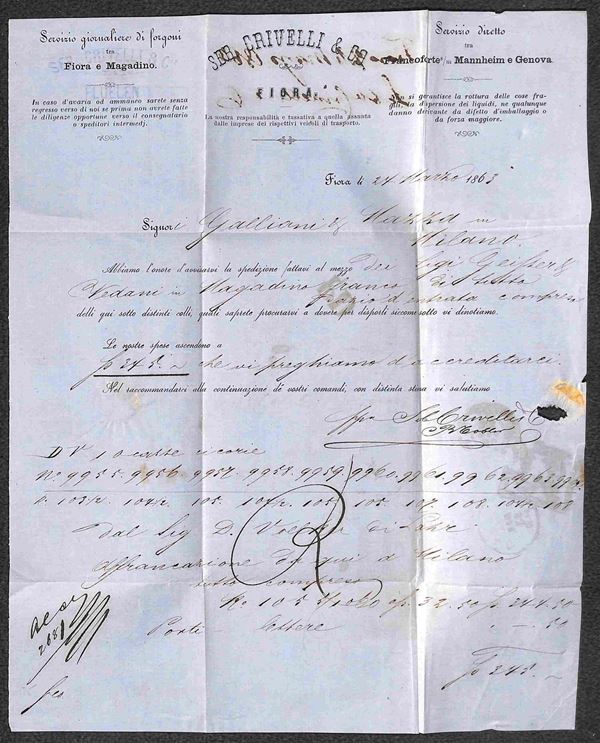 Servizio giornaliere di forgoni
tra
Fiora e Magadino.
In caso d'avaria od ammanco sarete senza
regresso verso di noi se prima non avrete fatte
le diligenze opportune verso il consegnatario
o speditori intermedj.
SEB. CRIVELLI & CO
FIORA
La nostra responsabilità e tassativa a quella assunta
dalle imprese dei rispettivi veicoli di trasporto.
Servizio diretto
tra
Francoforte s/m Mannheim e Genova.
Non si garantisce la rottura delle cose fragili,
la dispersione dei liquidi, ne qualunque
danno derivante da difetto d'imballaggio o
da forza maggiore.
FLUELEN
Fiora li 24 Marzo 1863
Signori Galliani & Mazza in
Milano.
Abbiamo l'onore d'avvisarvi la spedizione fattavi al mezzo dei Sigi
Vedani in Magadino franco di tutto
Dazio d'entrata compreso
delli qui sotto distinti colli, quali saprete procurarvi a dovere per disporli siccome sotto vi dinotiamo.
Le nostre spese ascendono a
fo 245.~ che vi preghiamo d'accreditarci.
Nel raccomandarci alla continuazione de' vostri comandi, con distinta stima vi salutiamo
ppa Seb. Crivelli & C
D V 10 casse cicorie
No 9955. 9956. 9957. 9958. 9959. 9960. 9961. 9962. 9963. 9964
dal Sig D. di Lahr
Affrancazione da qui a Milano
tutto compreso
Ko 1059 fo 244.50
Porti lettere " -.50
fo 245.~
R
2681